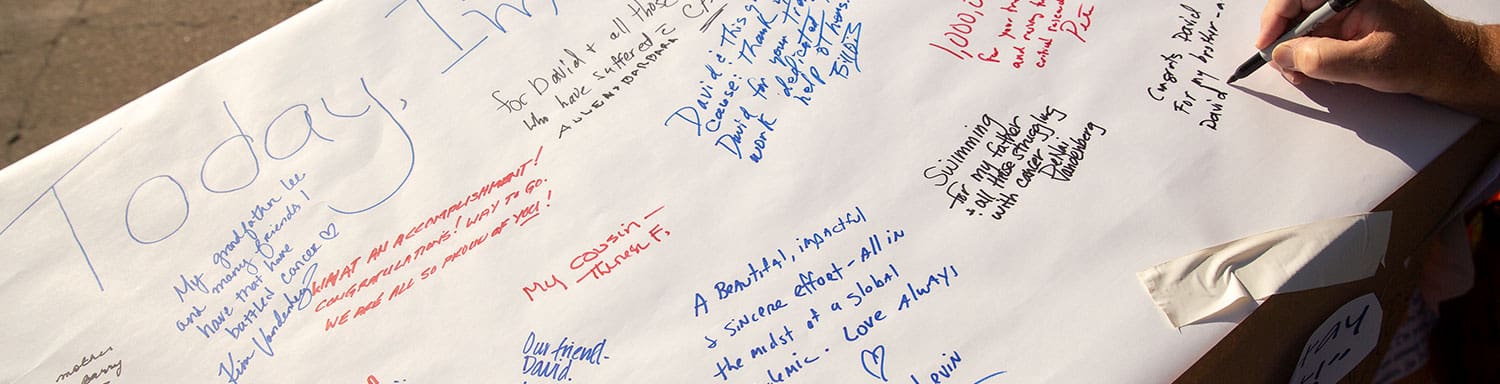 Today,
for David + all those
who have suffered
David & this great
cause: Thank you
David for your
dedicated
work
help others.
1,000,0
for your
and moving
critical
Pete
Congrats David
For my brother-
David
Swimming
for my father
+ all those struggling
with cancer
Vandenberg
My grandfather Lee
and many friends!
have that have
battled cancer ♡
Kim Vandenberg
WHAT AN ACCOMPLISHMENT!
CONGRATULATIONS! WAY TO GO.
WE ARE ALL SO PROUD OF YOU!
My cousin –
Theresa F.
A Beautiful, impactful
& sincere effort - All in
the midst of a global
demic. Love Always
♡
evin
Our friend-
David.
mother
Barry